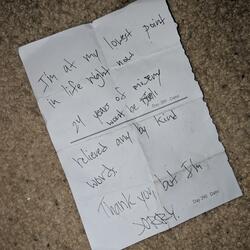 I'm at my lowest point
in life right now
24 years of misery
wont be
relieved any by kind
words
Thank you, but I'm
sorry.